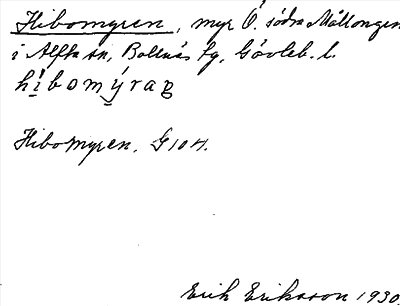 Hibomyren, myr Ö. södra Mållongen
i Alfta sn, Bollnäs fg, Gävleb. l.
hìbomýraṇ
Hibomyren, G104.
Erik Eriksson 1930.